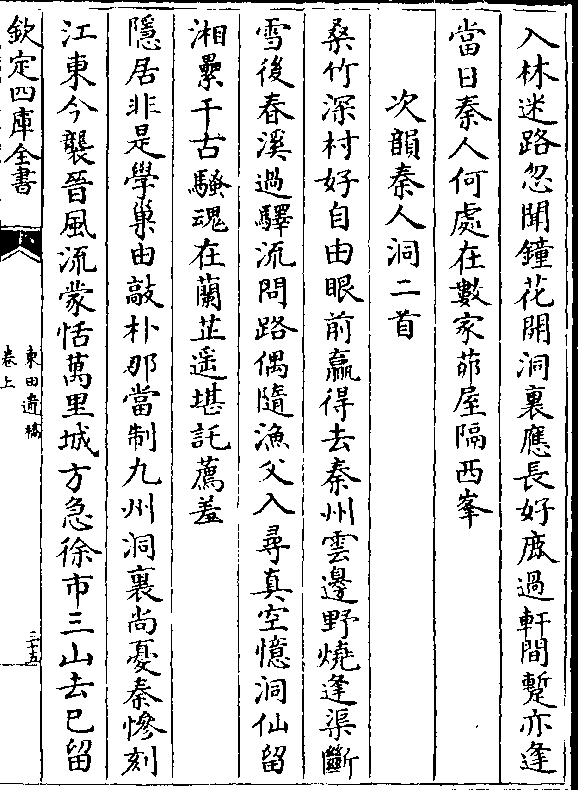 入林迷路忽聞鐘花開洞裏應長好鹿過軒間蹔亦逢
當日秦人何處在數家茆屋隔西峯
次韻秦人洞二首
桑竹深村好自由眼前贏得去秦州雲邊野燒逢渠斷
雪後春溪過驛流問路偶隨漁父入尋真空憶洞仙留
湘纍千古騷魂在蘭芷遥堪託薦羞
隱居非是學巢由敲朴那當制九州洞裏尚憂秦慘刻
江東今襲晉風流蒙恬萬里城方急徐市三山去已留
欽定四庫全書
東田遺稿
卷上
三十五